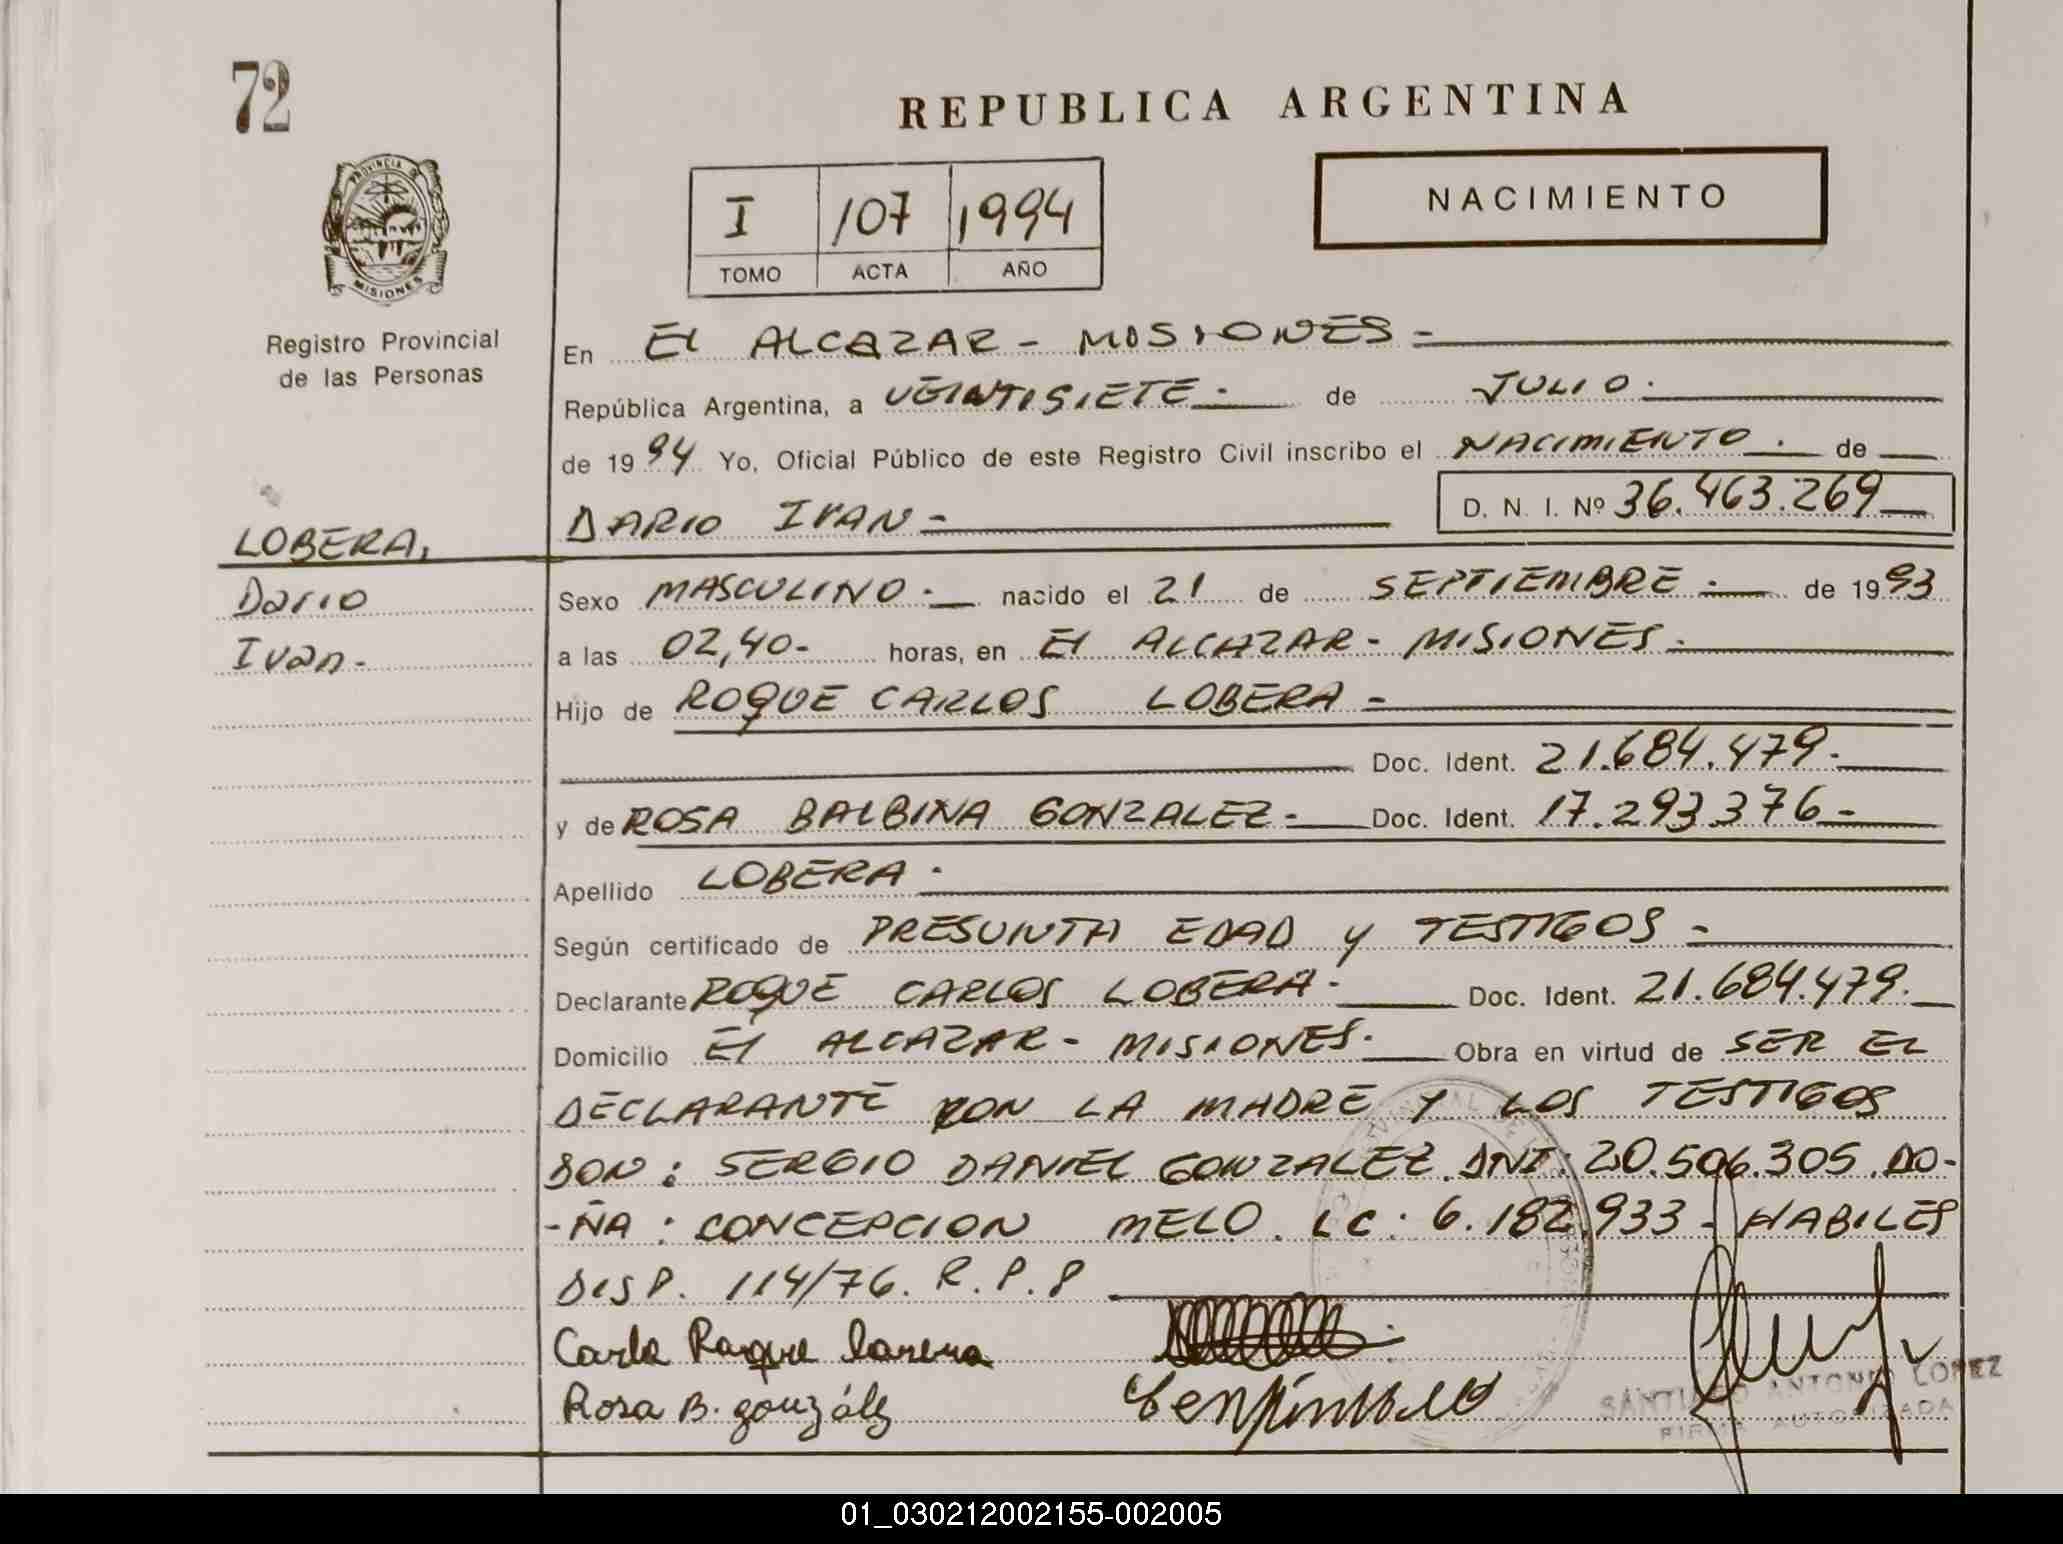 72
REPUBLICA ARGENTINA
PROVINCIA DE
MISIONES
Registro Provincial
de las Personas
I 107 1994
TOMO ACTA AÑO
NACIMIENTO
En El ALCAZAR - MISIONES -
República Argentina, a VEINTISIETE - de JULIO.
de 1994 Yo, Oficial Público de este Registro Civil inscribo el NACIMIENTO. de
DARIO IVAN - D. N. I. Nº 36.463.269
LOBERA,
Dario
Ivan-
Sexo MASCULINO.- nacido el 21 de SEPTIEMBRE - de 1993
a las 02,40- horas, en El ALCAZAR - MISIONES.
Hijo de ROQUE CARLOS LOBERA -
Doc. Ident. 21.684.479-
y de ROSA BALBINA GONZALEZ- Doc. Ident. 17.293.376-
Apellido LOBERA.
Según certificado de PRESUNTA EDAD y TESTIGOS -
Declarante ROQUE CARLOS LOBERA- Doc. Ident. 21.684.479.
Domicilio El ALCAZAR - MISIONES. Obra en virtud de SER EL
DECLARANTE CON LA MADRE Y LOS TESTIGOS
DON: SERGIO DANIEL GONZALEZ DNI: 20.506.305 DO-
-ÑA: CONCEPCION MELO. LC: 6.182.933 - HABILES
DISP. 114/76. R.P.P
Rosa B. gonzález
SANTIAGO ANTONIO LOPEZ
FIRMA AUTORIZADA
01_030212002155-002005